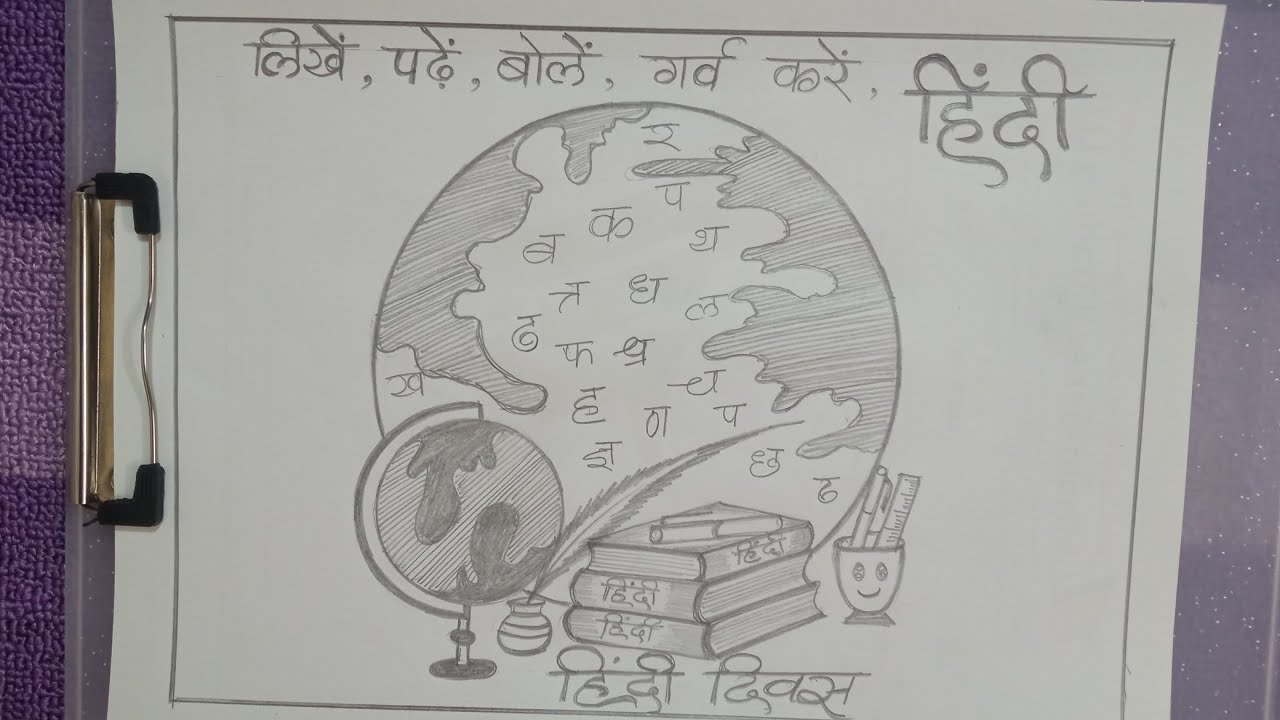 लिखें, पढ़ें, बोलें, गर्व करें, हिंदी
र
प
ब क थ
त्र ध ल
ढ फ श्र
ख ह ण प च
ज्ञ छ
ढ
हिंदी
हिंदी
हिंदी
हिंदी दिवस